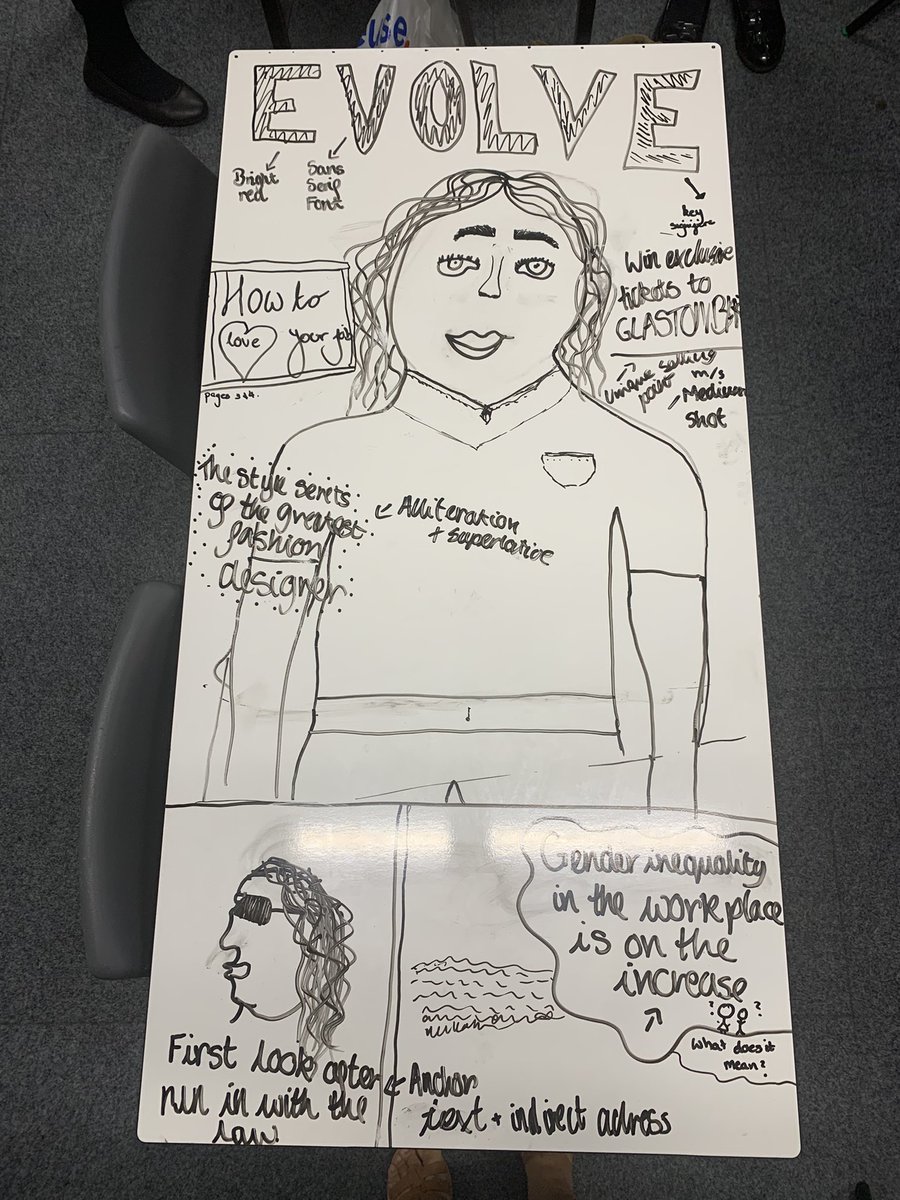 use
EVOLVE
Bright
red
Sans
Serif
Font
key
signifier
Win exclusive
tickets to
Unique selling
point
m/s
Medium
shot
How to
love your job
pages 3&4.
The style serets
of the greatest
fashion
designer
Alliteration
+ superlative
Gender inequality
in the workplace
is on the
increase
? ?
What does it
mean?
First look after
run in with the
law
Anchor
text + indirect adress